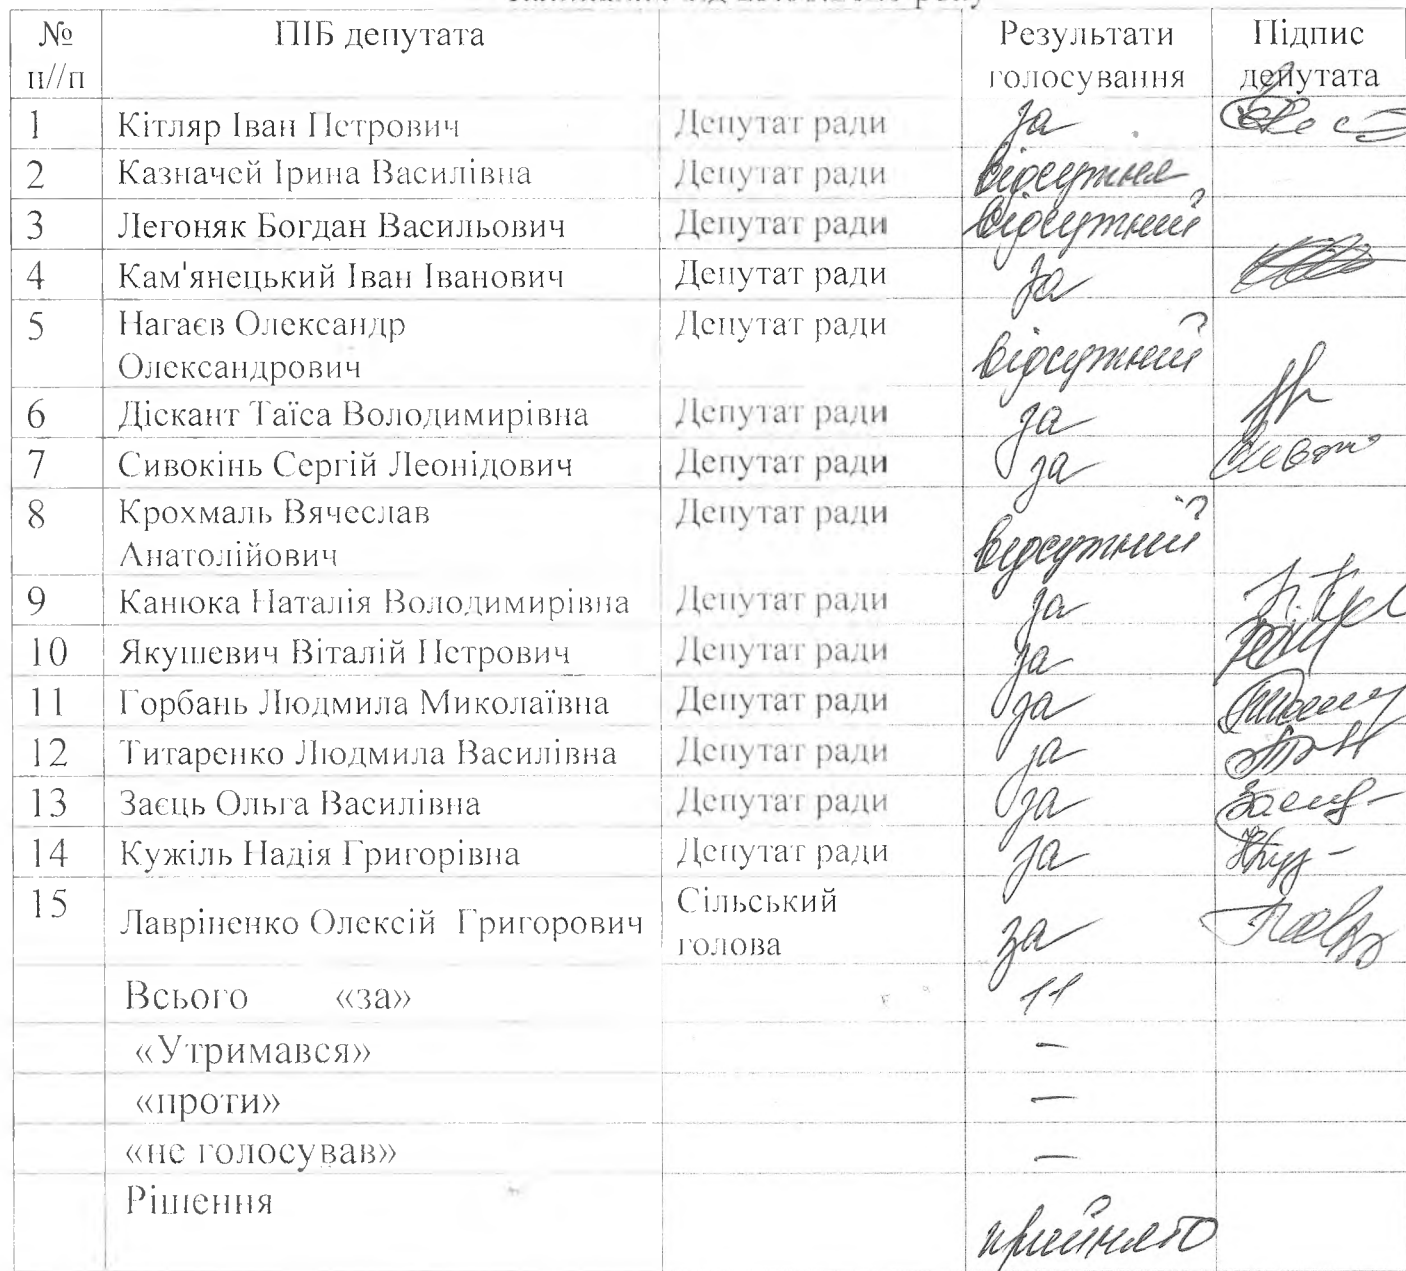 № ПІБ депутата Результати Підпис
п//п голосування депутата
1 Кітляр Іван Петрович Депутат ради за
2 Казначей Ірина Василівна Депутат ради відсутня
3 Легоняк Богдан Васильович Депутат ради відсутній
4 Кам'янецький Іван Іванович Депутат ради за
5 Нагаєв Олександр Депутат ради
Олександрович відсутній
6 Діскант Таїса Володимирівна Депутат ради за
7 Сивокінь Сергій Леонідович Депутат ради за
8 Крохмаль Вячеслав Депутат ради
Анатолійович відсутній
9 Канюка Наталія Володимирівна Депутат ради за
10 Якушевич Віталій Петрович Депутат ради за
11 Горбань Людмила Миколаївна Депутат ради за
12 Титаренко Людмила Василівна Депутат ради за
13 Заєць Ольга Василівна Депутат ради за
14 Кужіль Надія Григорівна Депутат ради за
15 Лавріненко Олексій Григорович Сільський
голова за
Всього «за» 11
«Утримався» –
«проти» –
«не голосував» –
Рішення
прийнято